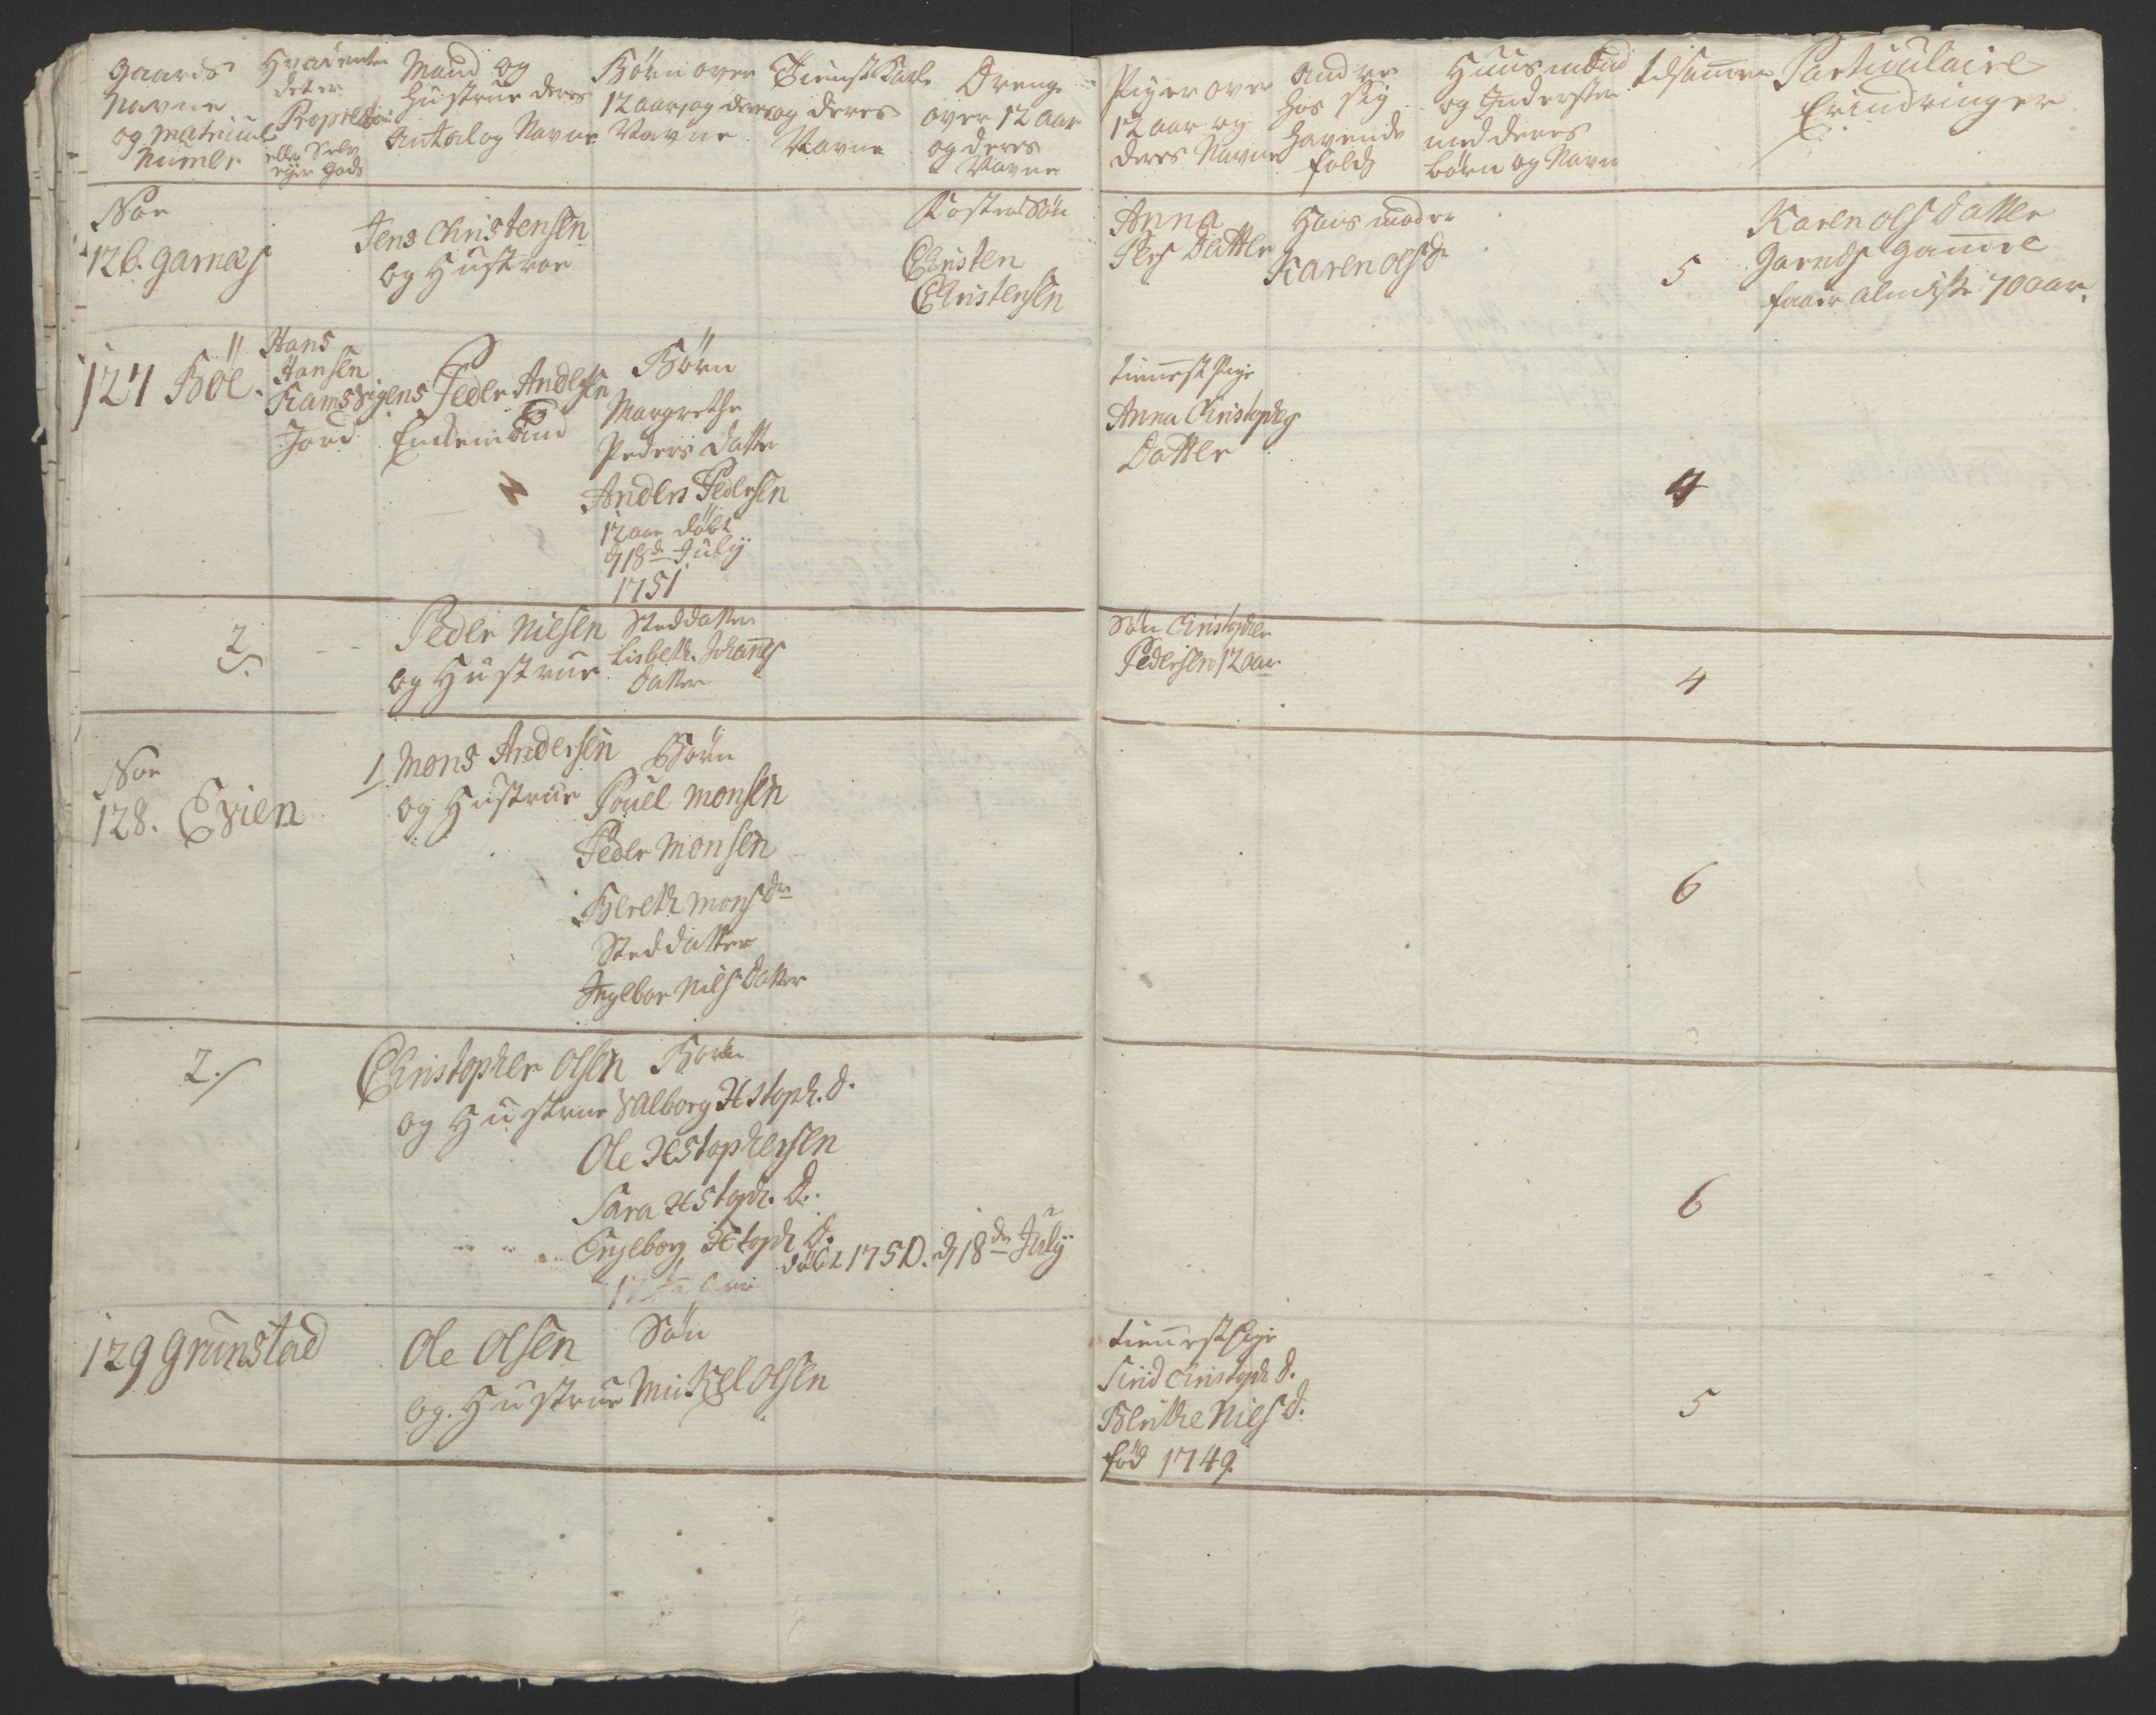 Gaards
Navne
og Matricul
Numer
Hvad enten
det er
Proprietair
eller Selv
eyer Gods
Mand og
Hustrue deres
Antal og Navne
Børn over
12 aar, og deres
Navne
Tienste Karle
og deres
Navne
Drenge
over 12 aar
og deres
Navne
Piger over
12 aar og
deres Navne
Andre
hos sig
havende
folk
Huusmænd
og Inderster
med deres
børn og Navn
tilsam̄en
Particulaire
Erindringer
Noe
126. Garnæs
Jens Christensen
og Hustrue
Foster Søn
Christen
Christensen
Anna
Pers Datter
Hans moder
Karen Olsdr
5
Karen Ols Datter
Gam̄el
faaer almisse 70 aar.
127 Böe.
Hans
Hansen
Ramsvigens
Jord
Peder Andersen
Enkemand
Børn
Margrethe
Peders Datter
Anders Pedersen
12 aar døbt
d 18de July
1751
tien̄est Pige
Anna Christophers
Datter
4
2
Peder Nielsen
og Hustrue
Steddatter
Lisbeth Johan̄es
Datter
Søn Christopher
Pedersen 12 aar
4
Noe
128. Evien
1 Mons Andersen
og Hustrue
Børn
Pouel Monsen
Peder Monsen
Bereth Monsdr
Steddatter
Ingebor Nils Datter
6
2.
Christopher Olsen
og Hustrue
Børn
Valborg Xstoph. d.
Ole Xstophersen
Sara Xstoph. d.
Engeborg Xstoph d.
døbt 1750. d 18de July
6
129 Grunstad
Ole Olsen
og Hustrue
Søn
Mickel Olsen
tien̄est Pige
Sirid Christoph d.
Berithe Niels d.
fød 1749.
5